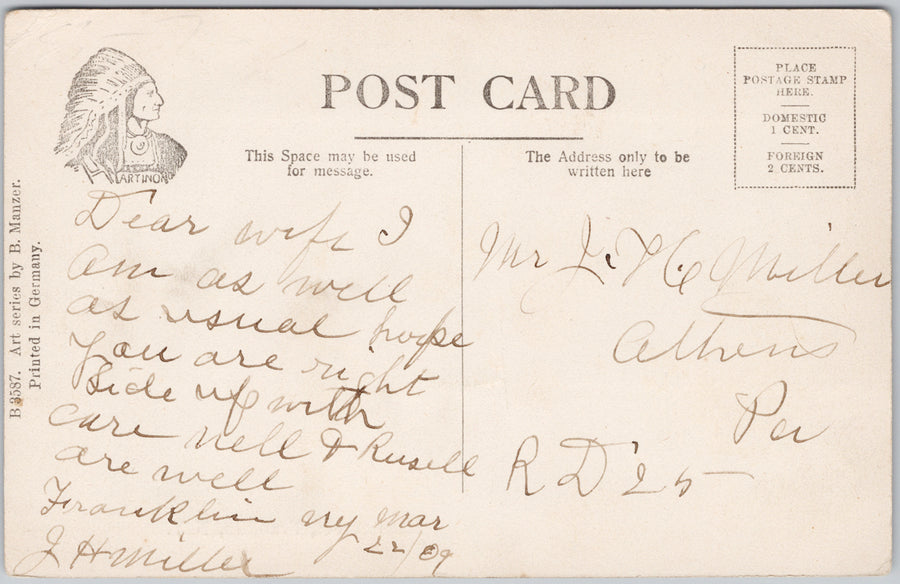 POST CARD
This Space may be used
for message.
The Address only to be
written here
PLACE
POSTAGE STAMP
HERE.
DOMESTIC
1 CENT.
FOREIGN
2 CENTS.
ARTINO
B 3587. Art series by B. Manzer.
Printed in Germany.
Dear wife I
am as well
as usual hope
you are right
side up with
care nell & Rusell
are well
Franklin ny mar
22/09
J H Miller
Mr J. H Miller
Athens
Pa
R D 25